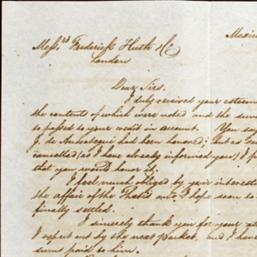 Mexico
Mess.rs Frederick Huth & Co.
London
Dear Sirs.
I duly received your esteem
the contents of which were noted and the sum
so passed to your credit in account. You say
J. de had been honored; but as
cancelled (as I have already informed you) I
that you wont honor it.
I feel much obliged by your interest
the affair of the Thetis and I hope soon to
finally settled.
I sincerely thank you for your
I expect out by the next packet, and I have
sums paid to him.